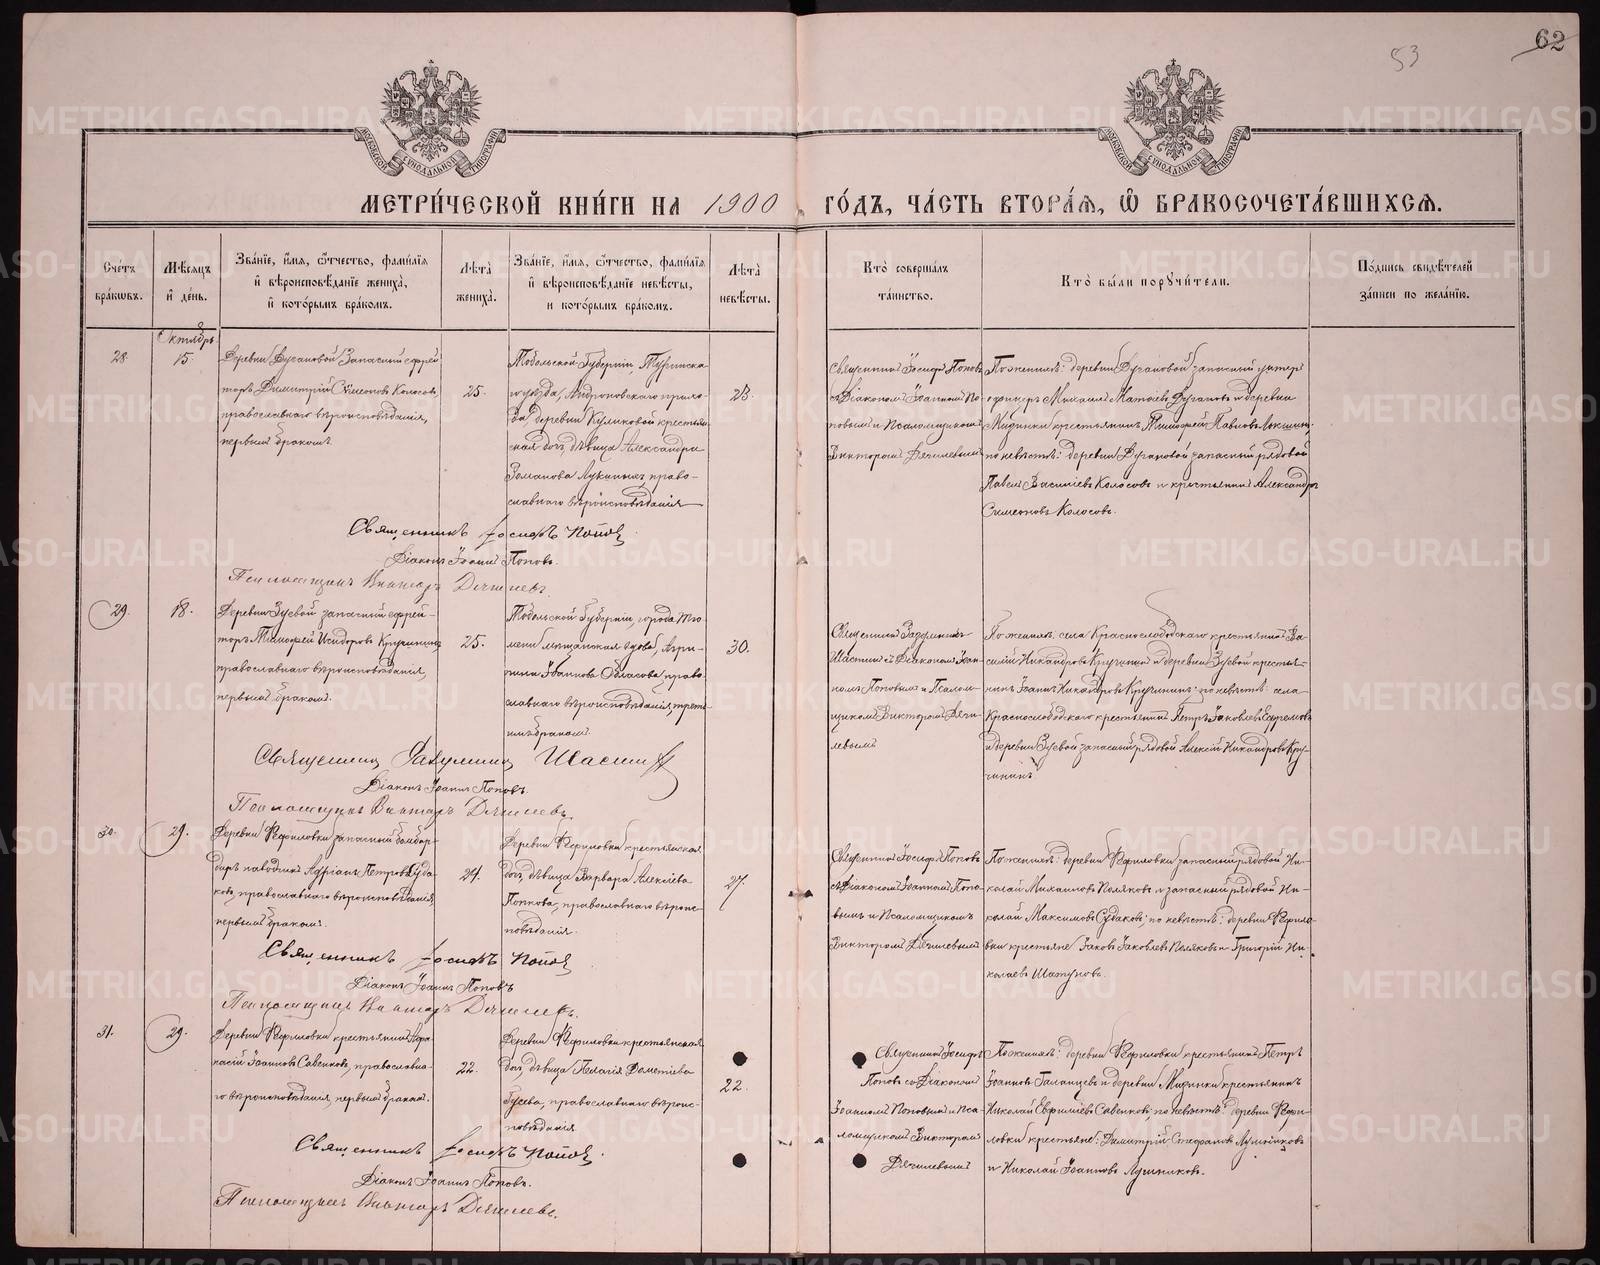 62
53
МОСКОВСКОЙ СѴНОДАЛЬНОЙ ТИПОГРАФІИ
МОСКОВСКОЙ СѴНОДАЛЬНОЙ ТИПОГРАФІИ
МЕТРИ́ЧЕСКОЙ КНИ́ГИ НА 1900 ГО́ДЪ, ЧА́СТЬ ВТОРА́Я, Ѽ БРАКОСОЧЕТА́ВШИХСЯ.
Сче́тъ бра́ковъ.
Мѣ́сяцъ и де́нь.
Зва́нїе, и́мя, ѻ́тчество, фами́лїя и҆ вѣроисповѣ́данїе жениха̀, и҆ кото́рымъ бра́комъ.
Лѣ́та жениха̀.
Зва́нїе, и́мя, ѻ́тчество, фами́лїя и҆ вѣроисповѣ́данїе невѣ́сты, и҆ кото́рымъ бра́комъ.
Лѣ́та невѣ́сты.
Кто̀ соверша́лъ та́инство.
Кто̀ бы́ли порꙋчи́тели.
По́дпись свидѣ́телей за́писи по жела́нїю.
Октябрь
28.
15.
Деревни Дугановой запасный ефрей-
торъ Димитрій Симеоновъ Колосовъ,
православнаго вѣроисповѣданія,
первымъ бракомъ.
25.
Тобольской губерніи, Туринска-
го уѣзда, Андроновскаго прихо-
да, деревни Куликовой крестьян-
ская дочь, дѣвица Александра
православнаго вѣроисповѣданія
23.
Священникъ Іосифъ Поповъ
съ Діакономъ Іоанномъ По-
повымъ и Псаломщикомъ
Викторомъ Дягилевымъ
По женихѣ: деревни Дугановой запасный унтеръ
офицеръ Михаилъ Матвѣевъ Дугановъ и деревни
Мидинки крестьянинъ Тимофей Павловъ
по невѣстѣ: деревни Дугановой запасный рядовой
Павелъ Васильевъ Колосовъ и крестьянинъ Александръ
Симеоновъ Колосовъ.
Священникъ Іосифъ Попов
Діаконъ Іоаннъ Поповъ.
Псаломщикъ Викторъ Дягилевъ.
29.
18.
Деревни Зуевой запасный ефрей-
торъ Тимофей Исидоровъ Кручининъ
православнаго вѣроисповѣданія,
первымъ бракомъ.
25.
Тобольской губерніи, города Тю-
мени мѣщанская вдова, Агри-
пина Іоаннова Власова, право-
славнаго вѣроисповѣданія, треть-
имъ бракомъ.
30.
Священникъ
съ Діакономъ Іоан-
номъ Поповымъ и Псалом-
щикомъ Викторомъ Дяги-
левымъ
По женихѣ: села Краснослободскаго крестьянинъ Ва-
силій Никандровъ Кручининъ и деревни Зуевой крестья-
нинъ Іоаннъ Никандровъ Кручининъ; по невѣстѣ: села
Краснослободскаго крестьянинъ Петръ Іаковлевъ Ефремовъ
и деревни Зуевой запасный рядовой Алексій Никандровъ Кру-
чининъ.
Священникъ
Діаконъ Іоаннъ Поповъ.
Псаломщикъ Викторъ Дягилевъ.
30.
29.
Деревни Ѳефиловки запасный бомбар-
диръ наводчикъ Адріанъ Петровъ Суда-
ковъ, православнаго вѣроисповѣданія
первымъ бракомъ.
24.
Деревни Ѳефиловки крестьянская
дочь, дѣвица Варвара Алексіева
Попкова, православнаго вѣроис-
повѣданія.
27.
Священникъ Іосифъ Поповъ
съ Діакономъ Іоанномъ Попо-
вымъ и Псаломщикомъ
Викторомъ Дягилевымъ
По женихѣ: деревни Ѳефиловки запасный рядовой Ни-
колай Михаиловъ Поляковъ и запасный рядовой Ни-
колай Максимовъ Судаковъ; по невѣстѣ: деревни Ѳефило-
вки крестьяне Іаковъ Іаковлевъ Поляковъ и Григорій Ни-
колаевъ Шатуновъ.
Священникъ Іосифъ Попов
Діаконъ Іоаннъ Поповъ
Псаломщикъ Викторъ Дягилевъ.
31.
29.
Деревни Ѳефиловки крестьянинъ
Іоанновъ Савенковъ, православна-
го вѣроисповѣданія, первымъ бракомъ.
22.
Деревни Ѳефиловки крестьянская
дочь, дѣвица Пелагія Дометіева
Гусева, православнаго вѣроис-
повѣданія
22.
Священникъ Іосифъ
Поповъ со Діакономъ
Іоанномъ Поповымъ и Пса-
ломщикомъ Викторомъ
Дягилевымъ
По женихѣ: деревни Ѳефиловки крестьянинъ Петръ
Іоанновъ Галанцевъ и деревни Мидинки крестьянинъ
Николай Савенковъ; по невѣстѣ: деревни Ѳефи-
ловки крестьяне: Димитрій Стефановъ Лушниковъ
и Николай Іоанновъ Лушниковъ.
Священникъ Іосифъ Попов.
Діаконъ Іоаннъ Поповъ.
Псаломщикъ Викторъ Дягилевъ.
METRIKI.GASO-URAL.RU